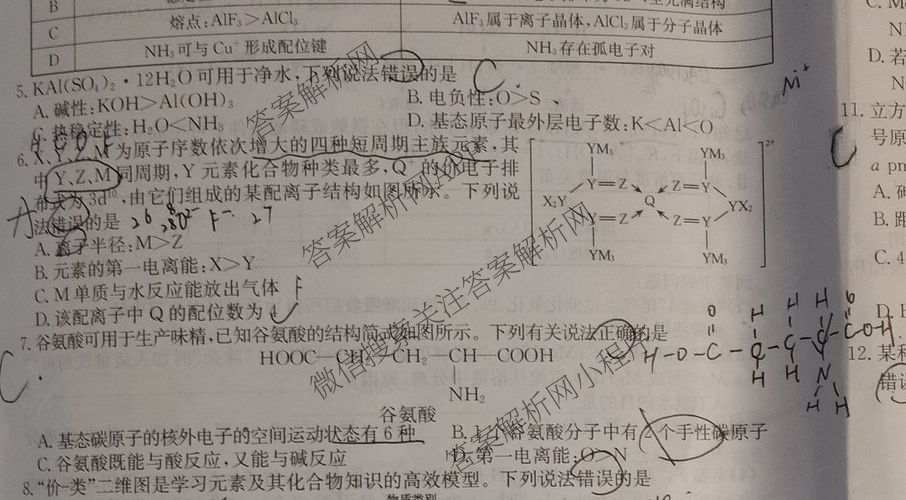 B
C 熔点:AlF₃>AlCl₃ AlF₃属于离子晶体,AlCl₃属于分子晶体
D NH₃可与Cu⁺形成配位键 NH₃存在孤电子对
5. KAl(SO₄)₂·12H₂O可用于净水,下列说法错误的是
A. 碱性:KOH>Al(OH)₃ B. 电负性:O>S
C. 热稳定性:H₂O<NH₃ D. 基态原子最外层电子数:K<Al<O
6. X、Y、Z、M为原子序数依次增大的四种短周期主族元素,其
中Y、Z、M同周期,Y元素化合物种类最多,Q 的价电子排
布式为3d¹⁰,由它们组成的某配离子结构如图所示。下列说
法错误的是
YM₃ YM₃ 2+
Y=Z Z=Y
X₂Y Q YX₂
Y=Z Z=Y
YM₃ YM₃
A. 离子半径:M>Z
B. 元素的第一电离能:X>Y
C. M单质与水反应能放出气体
D. 该配离子中Q的配位数为4
7. 谷氨酸可用于生产味精,已知谷氨酸的结构简式如图所示。下列有关说法正确的是
HOOC—CH₂—CH₂—CH—COOH
NH₂
谷氨酸
A. 基态碳原子的核外电子的空间运动状态有6种 B. 1个谷氨酸分子中有2个手性碳原子
C. 谷氨酸既能与酸反应,又能与碱反应 D. 第一电离能:O>N
8. “价-类”二维图是学习元素及其化合物知识的高效模型。下列说法错误的是
物质类别
C. M
D. 若
11. 立方
号原
a pm
A. 硒
B. 距
C. 4
12. 某科
错误
答案解析网
微信搜索关注答案解析网
答案解析网小程序